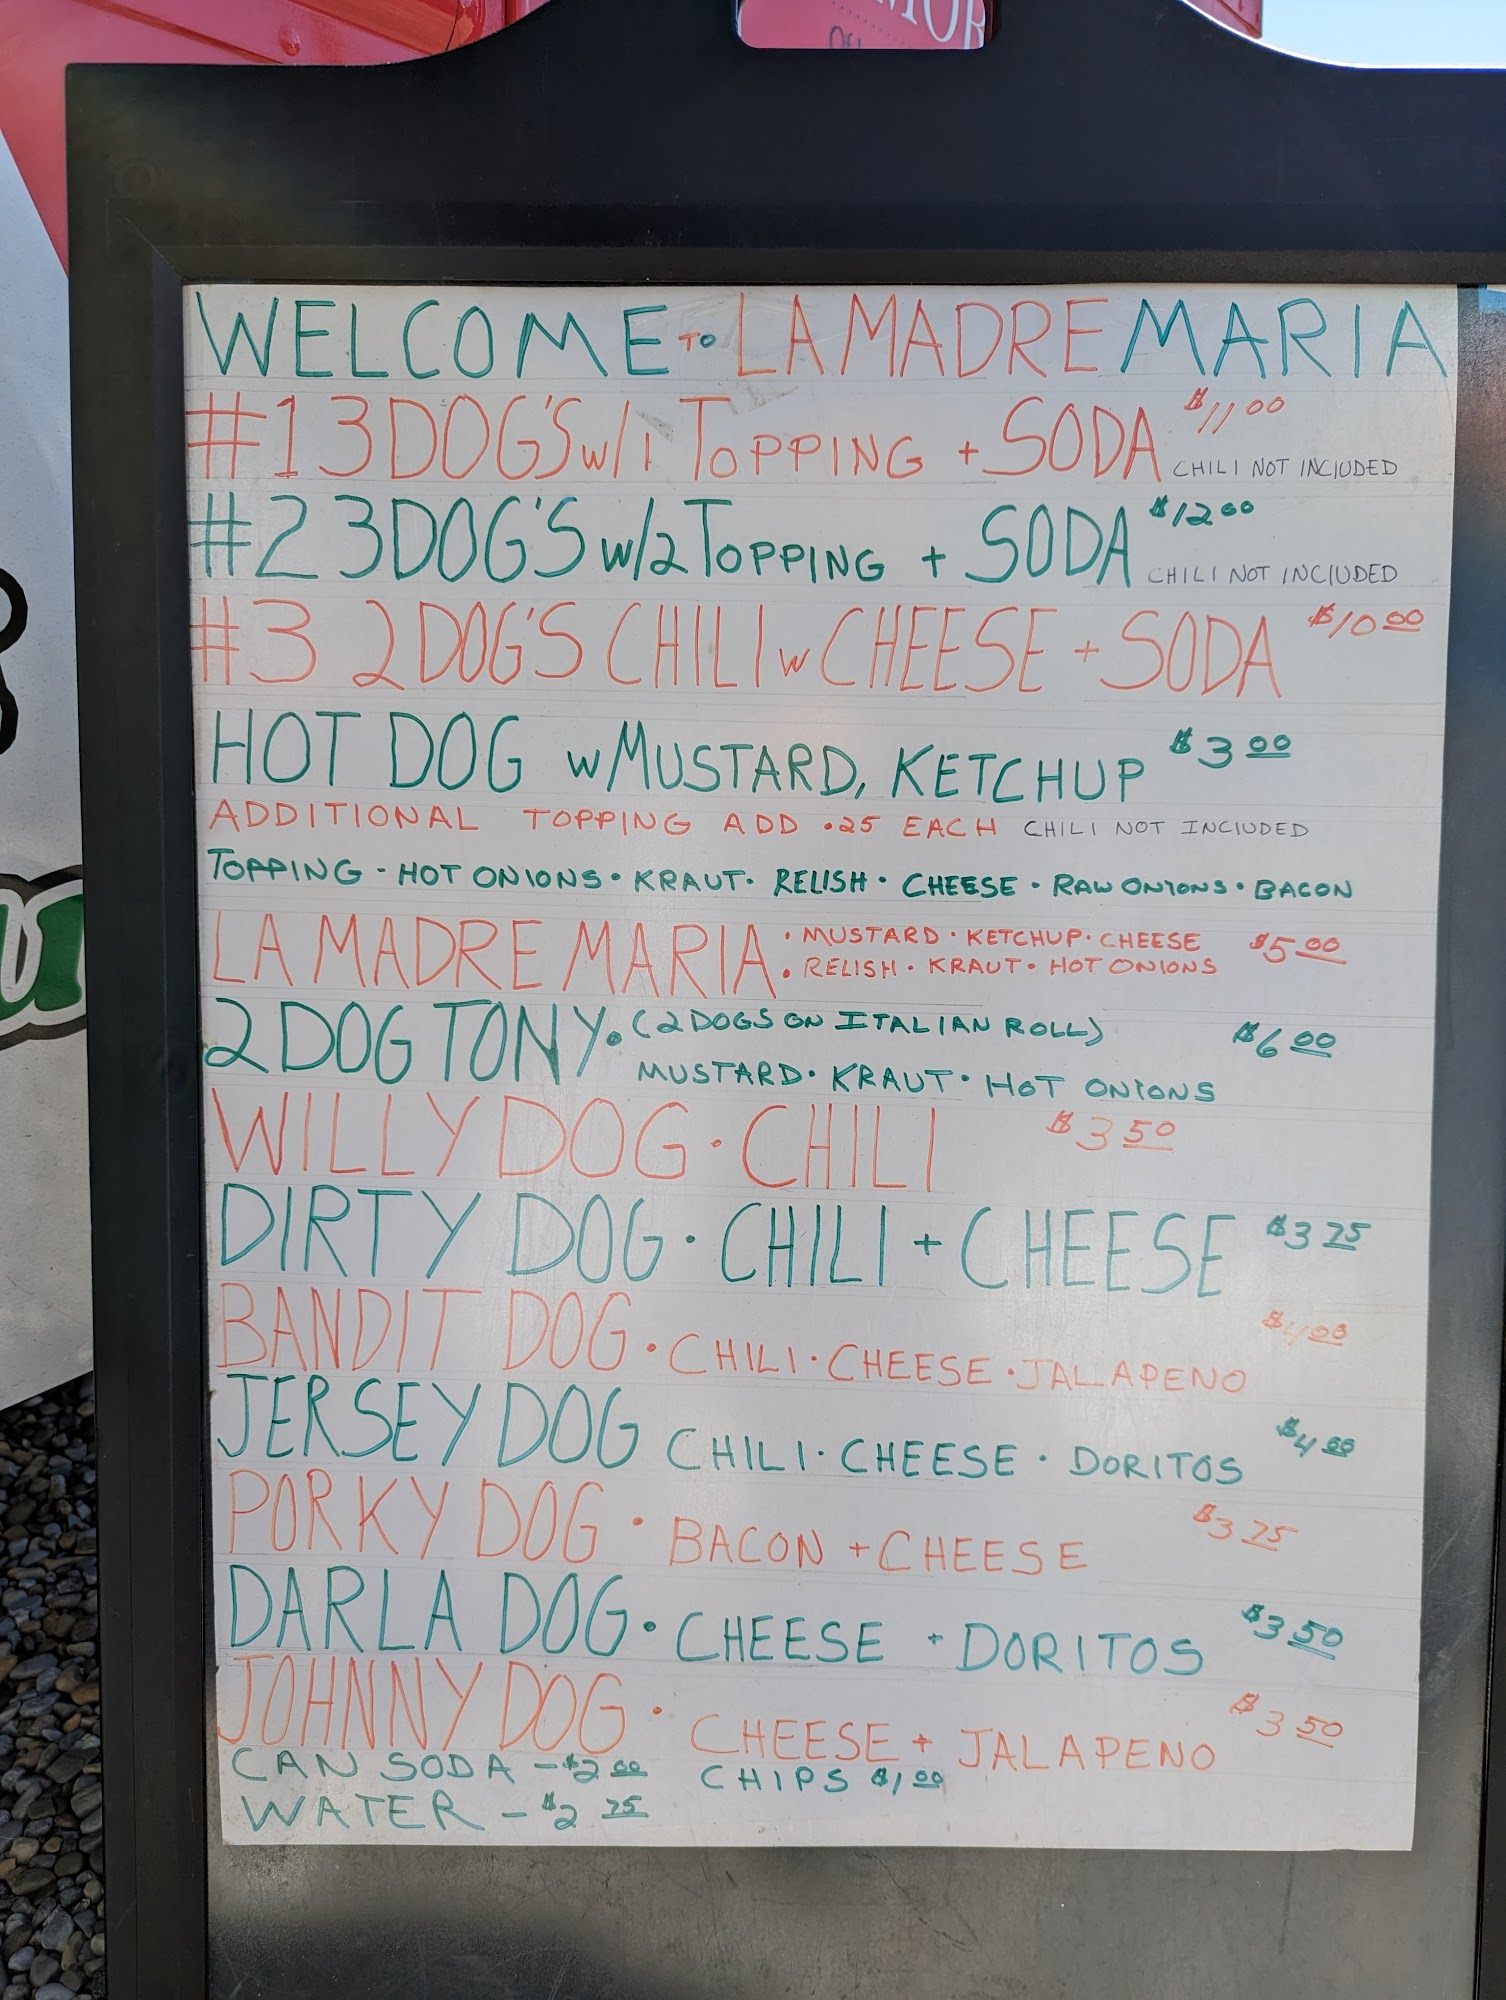 WELCOME TO LA MADRE MARIA
#1 3 DOG'S w/1 TOPPING + SODA $11.00 CHILI NOT INCLUDED
#2 3 DOG'S w/2 TOPPING + SODA $12.00 CHILI NOT INCLUDED
#3 2 DOG'S CHILI w CHEESE + SODA $10.00
HOT DOG w MUSTARD, KETCHUP $3.00
ADDITIONAL TOPPING ADD .25 EACH CHILI NOT INCLUDED
TOPPING - HOT ONIONS • KRAUT • RELISH • CHEESE • RAW ONIONS • BACON
LA MADRE MARIA • MUSTARD • KETCHUP • CHEESE $5.00
• RELISH • KRAUT • HOT ONIONS
2 DOG TONY • (2 DOGS ON ITALIAN ROLL) $6.00
MUSTARD • KRAUT • HOT ONIONS
WILLY DOG • CHILI $3.50
DIRTY DOG • CHILI + CHEESE $3.75
BANDIT DOG • CHILI • CHEESE • JALAPENO $4.00
JERSEY DOG CHILI • CHEESE • DORITOS $4.00
PORKY DOG • BACON + CHEESE $3.75
DARLA DOG • CHEESE + DORITOS $3.50
JOHNNY DOG • CHEESE + JALAPENO $3.50
CAN SODA - $2.00 CHIPS $1.00
WATER - $2.75